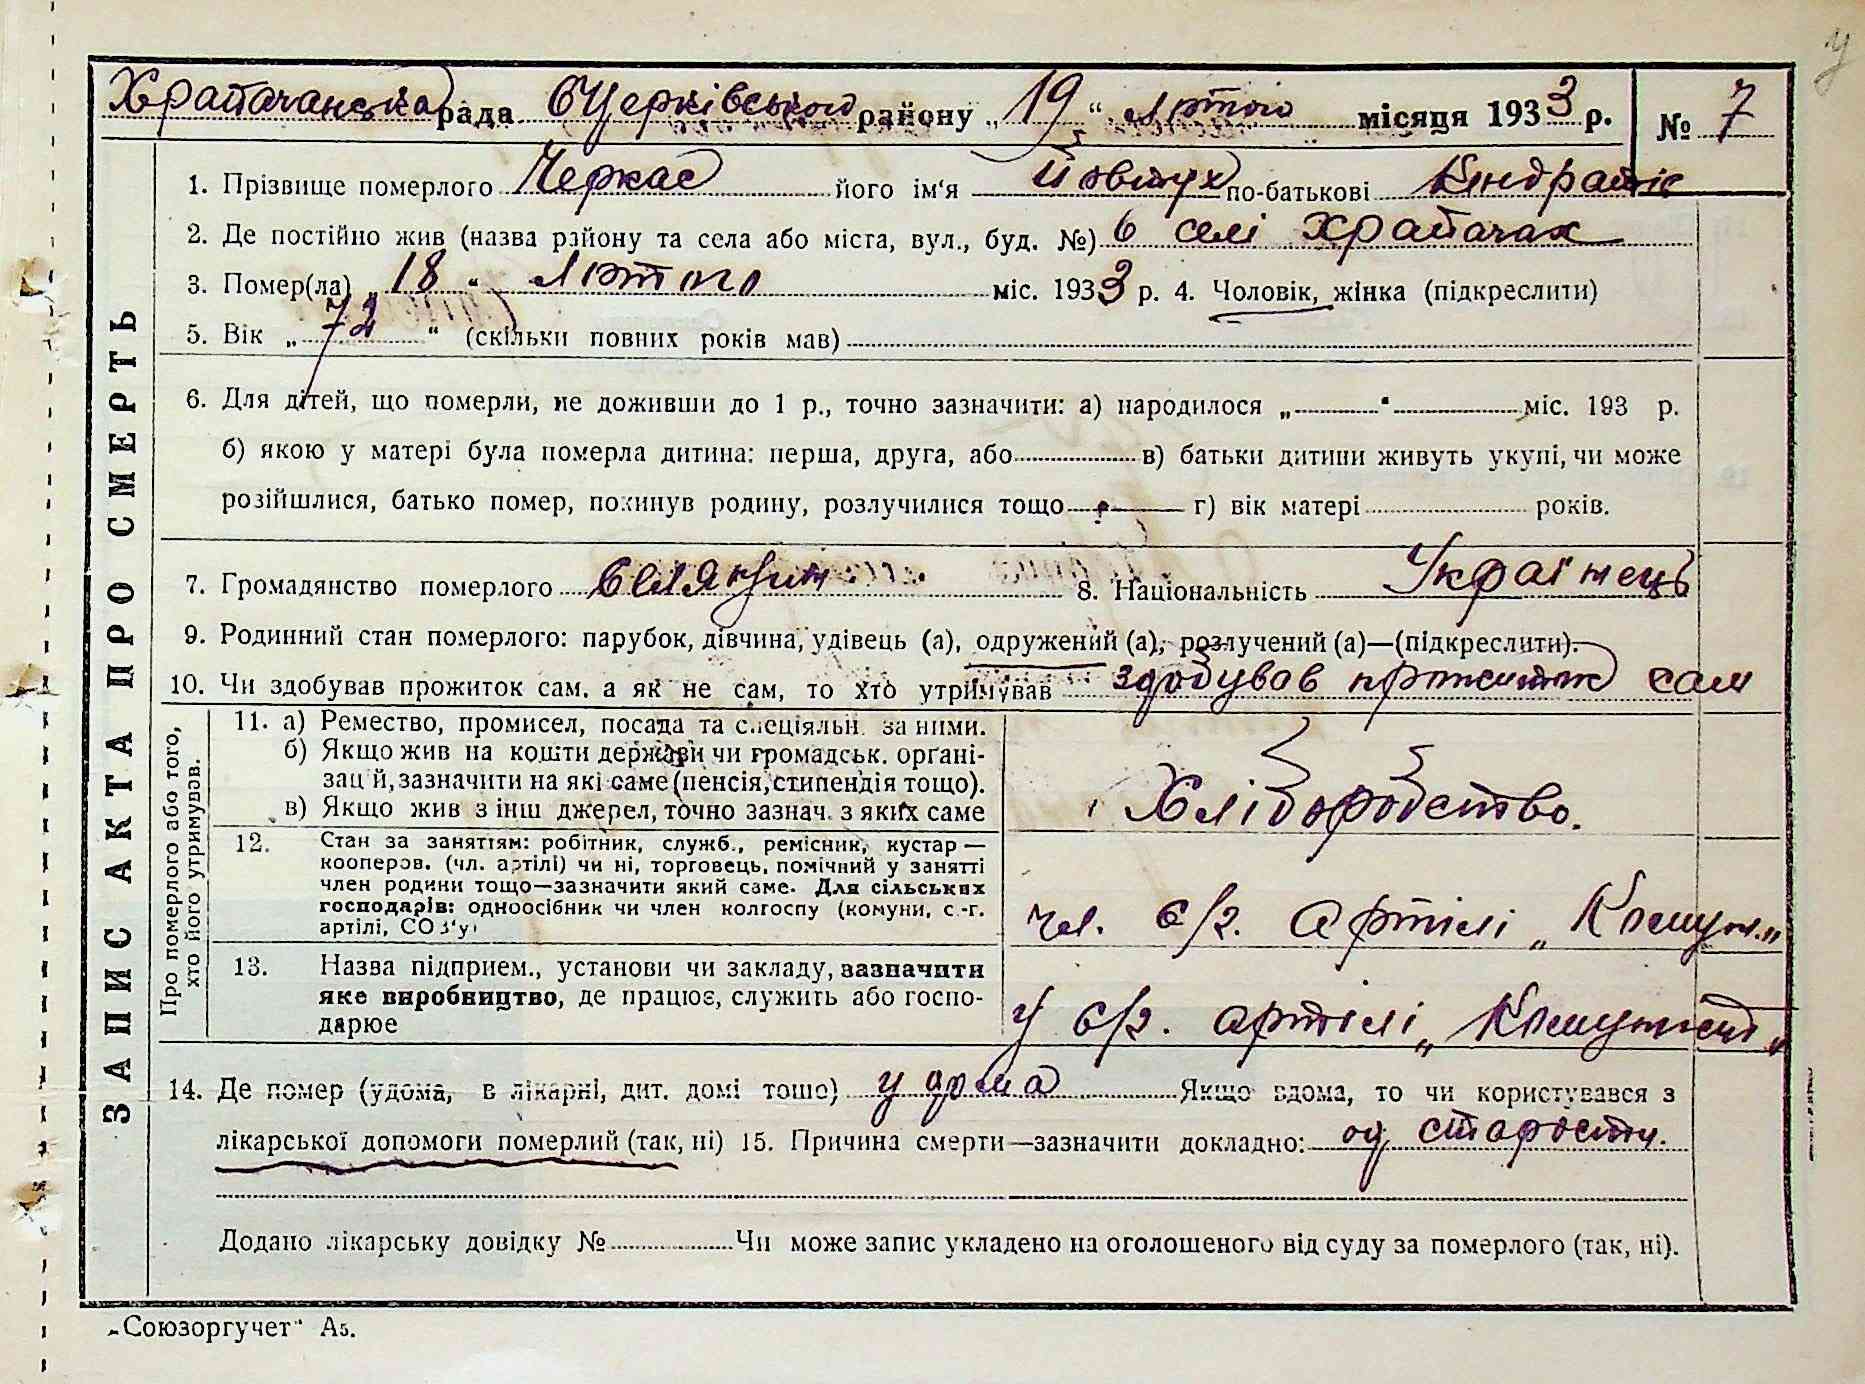 Храпачанська рада БЦерківського району „19“ лютого місяця 1933 р. № 7
1. Прізвище померлого Черкас його ім'я Йовтух по-батькові Кіндратів
2. Де постійно жив (назва району та села або міста, вул., буд. №) в селі Храпачах
3. Помер(ла) „18“ лютого міс. 1933 р. 4. Чоловік, жінка (підкреслити)
5. Вік „72“ (скільки повних років мав)
6. Для дітей, що померли, не доживши до 1 р., точно зазначити: а) народилося „ “ міс. 193 р.
б) якою у матері була померла дитина: перша, друга, або в) батьки дитини живуть укупі, чи може
розійшлися, батько помер, покинув родину, розлучилися тощо г) вік матері років.
7. Громадянство померлого селянин 8. Національність Українець
9. Родинний стан померлого: парубок, дівчина, удівець (а), одружений (а), розлучений (а)—(підкреслити).
10. Чи здобував прожиток сам, а як не сам, то хто утримував здобував прожиток сам
ЗАПИС АКТА ПРО СМЕРТЬ
Про померлого або того, хто його утримував.
11. а) Ремество, промисел, посада та спеціяльн. за ними.
б) Якщо жив на кошти держави чи громадськ. орґані-
зацій, зазначити на які саме (пенсія, стипендія тощо).
в) Якщо жив з інш джерел, точно зазнач. з яких саме
Хліборобство.
12. Стан за заняттям: робітник, служб., ремісник, кустар—
кооперов. (чл. артілі) чи ні, торговець, помічний у занятті
член родини тощо—зазначити який саме. Для сільських
господарів: одноосібник чи член колгоспу (комуни, с.-г.
артілі, СОЗ'у)
чл. с/г. артілі „Комун.“
13. Назва підприєм., установи чи закладу, зазначити
яке виробництво, де працює, служить або госпо-
дарює
у с/г. артілі „Комунист“
14. Де помер (удома, в лікарні, дит. домі тощо) у дома Якщо вдома, то чи користувався з
лікарської допомоги померлий (так, ні) 15. Причина смерти—зазначити докладно: од старости.
Додано лікарську довідку № Чи може запис укладено на оголошеного від суду за померлого (так, ні).
„Союзоргучет“ А5.